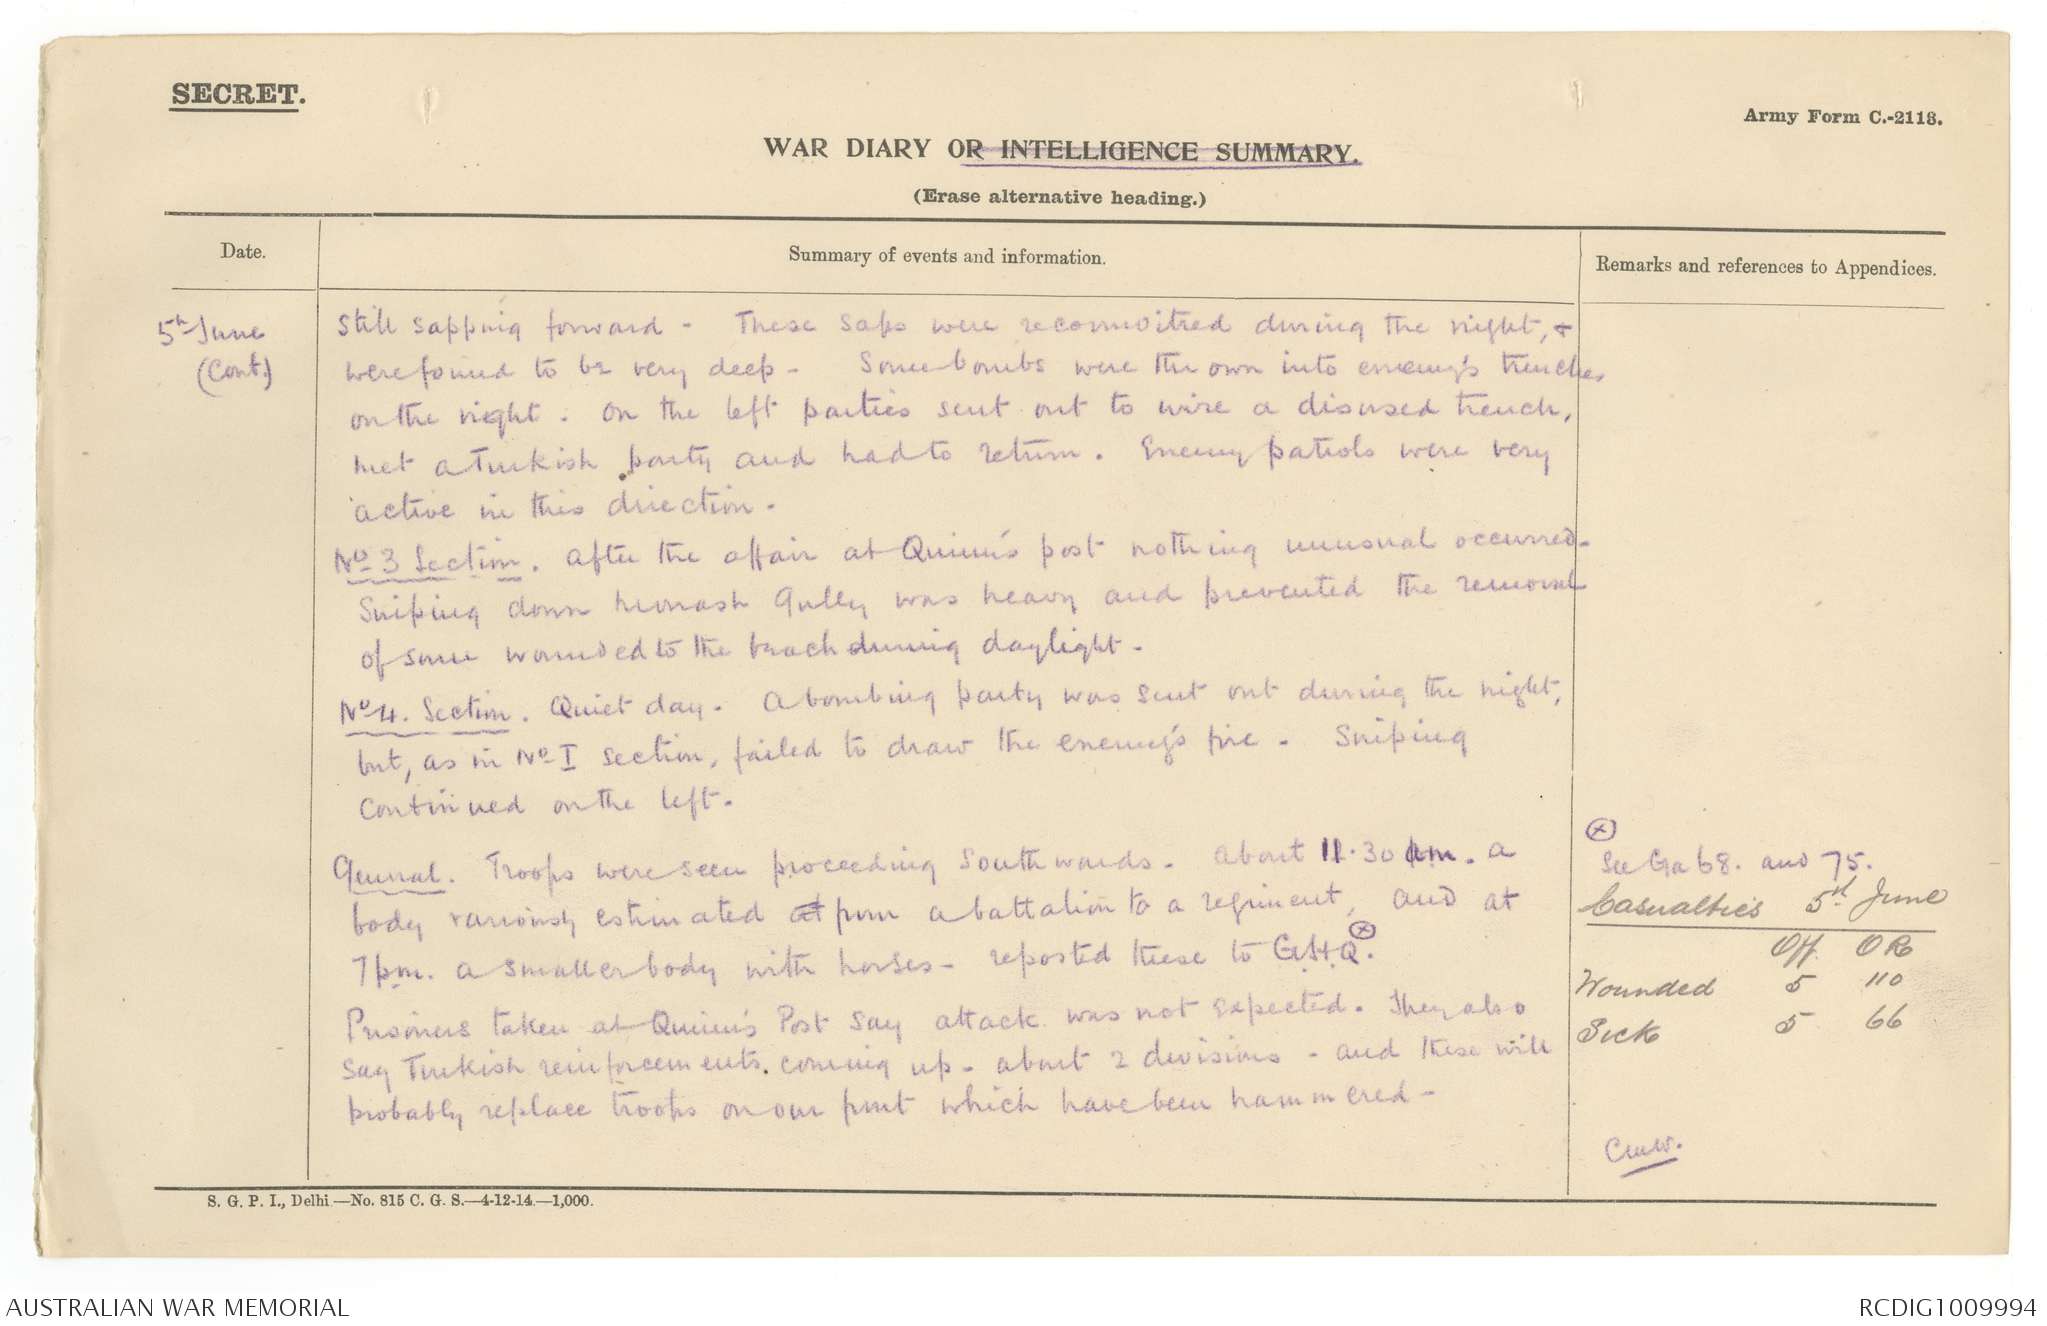 SECRET.
Army Form C.-2118.
WAR DIARY OR INTELLIGENCE SUMMARY.
(Erase alternative heading.)
Date.
Summary of events and information.
Remarks and references to Appendices.
5th June
(Cont.)
still sapping forward - These saps were reconnoitred during the night, &
were found to be very deep - Some bombs were thrown into enemy's trenches
on the right. On the left parties sent out to wire a disused trench,
met a Turkish party and had to return. Enemy patrols were very
active in this direction.
No 3 Section. After the affair at Quinn's post nothing unusual occurred -
Sniping down Monash Gully was heavy and prevented the removal
of some wounded to the beach during daylight -
No 4. Section. Quiet day. A bombing party was sent out during the night,
but, as in No I section, failed to draw the enemy's fire - Sniping
continued on the left.
General. Troops were seen proceeding Southwards - about 11.30 am. a
body variously estimated at from a battalion to a regiment, and at
7 pm. a smaller body with horses - reported these to G.H.Q.
Prisoners taken at Quinn's Post say attack was not expected. They also
say Turkish reinforcements. coming up - about 2 divisions - and these will
probably replace troops on our front which have been hammered -
See Ga 68. and 75.
Casualties 5th June
Off OR
Wounded 5 110
Sick 5 66
S. G. P. I., Delhi—No. 815 C. G. S.—4-12-14.—1,000.
AUSTRALIAN WAR MEMORIAL
RCDIG1009994